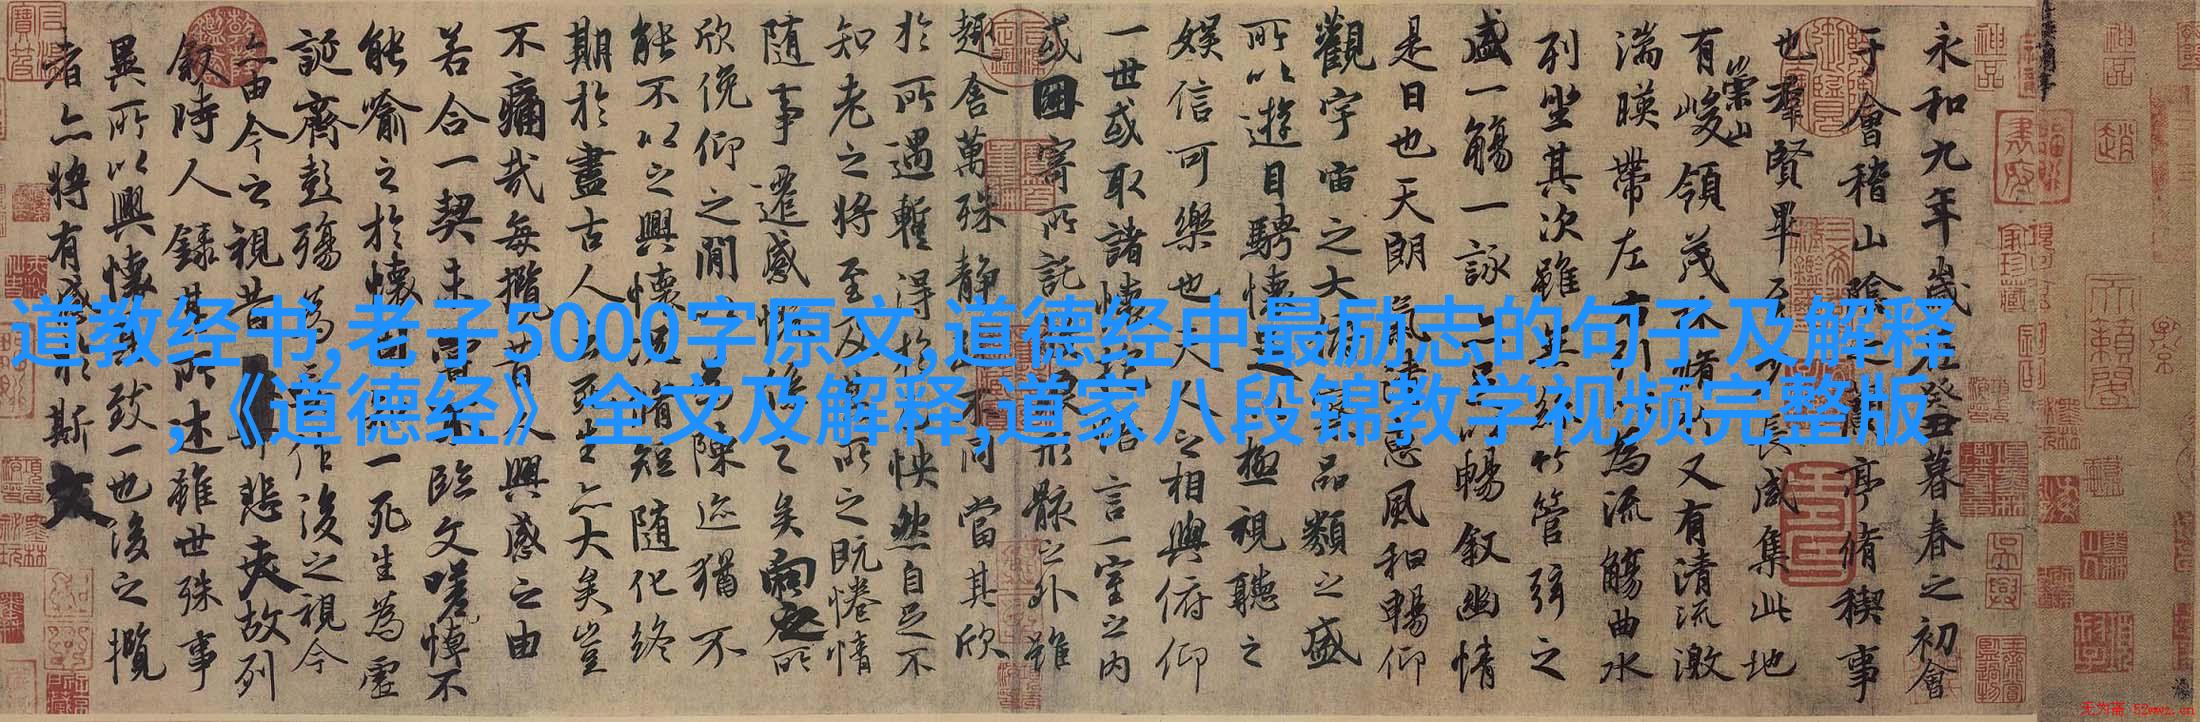 道教经书,老子5000字原文,道德经中最励志的句子及解释
,《道德经》全文及解释,道家八段锦教学视频完整版
永和九年歲在癸丑暮春之初會
于會稽山陰之蘭亭脩稧事
也羣賢畢至少長咸集此地
有崇山峻領茂林脩竹又有清流激
湍暎帶左右引以為流觴曲水
列坐其次雖無絲竹管弦之
盛一觴一詠亦足以暢敘幽情
是日也天朗氣清惠風和暢仰
觀宇宙之大俯察品類之盛
所以遊目騁懷足以極視聽之
娛信可樂也夫人之相與俯仰
一世或取諸懷抱悟言一室之內
或因寄所託放浪形骸之外雖
趣舍萬殊静躁不同當其欣
於所遇暫得於己怏然自足不
知老之將至及其所之既惓情
隨事遷感慨係之矣向之所
欣俛仰之閒以為陳迹猶不
能不以之興懷況脩短隨化終
期於盡古人云死生亦大矣豈
不痛哉每攬昔人興感之由
若合一契未嘗不臨文嗟悼不
能喻之於懷固知一死生為虛
誕齊彭殤為妄作後之視今
亦由今之視昔悲夫故列
敘時人錄其所述雖世殊事
異所以興懷其致一也後之攬
者亦將有感於斯文